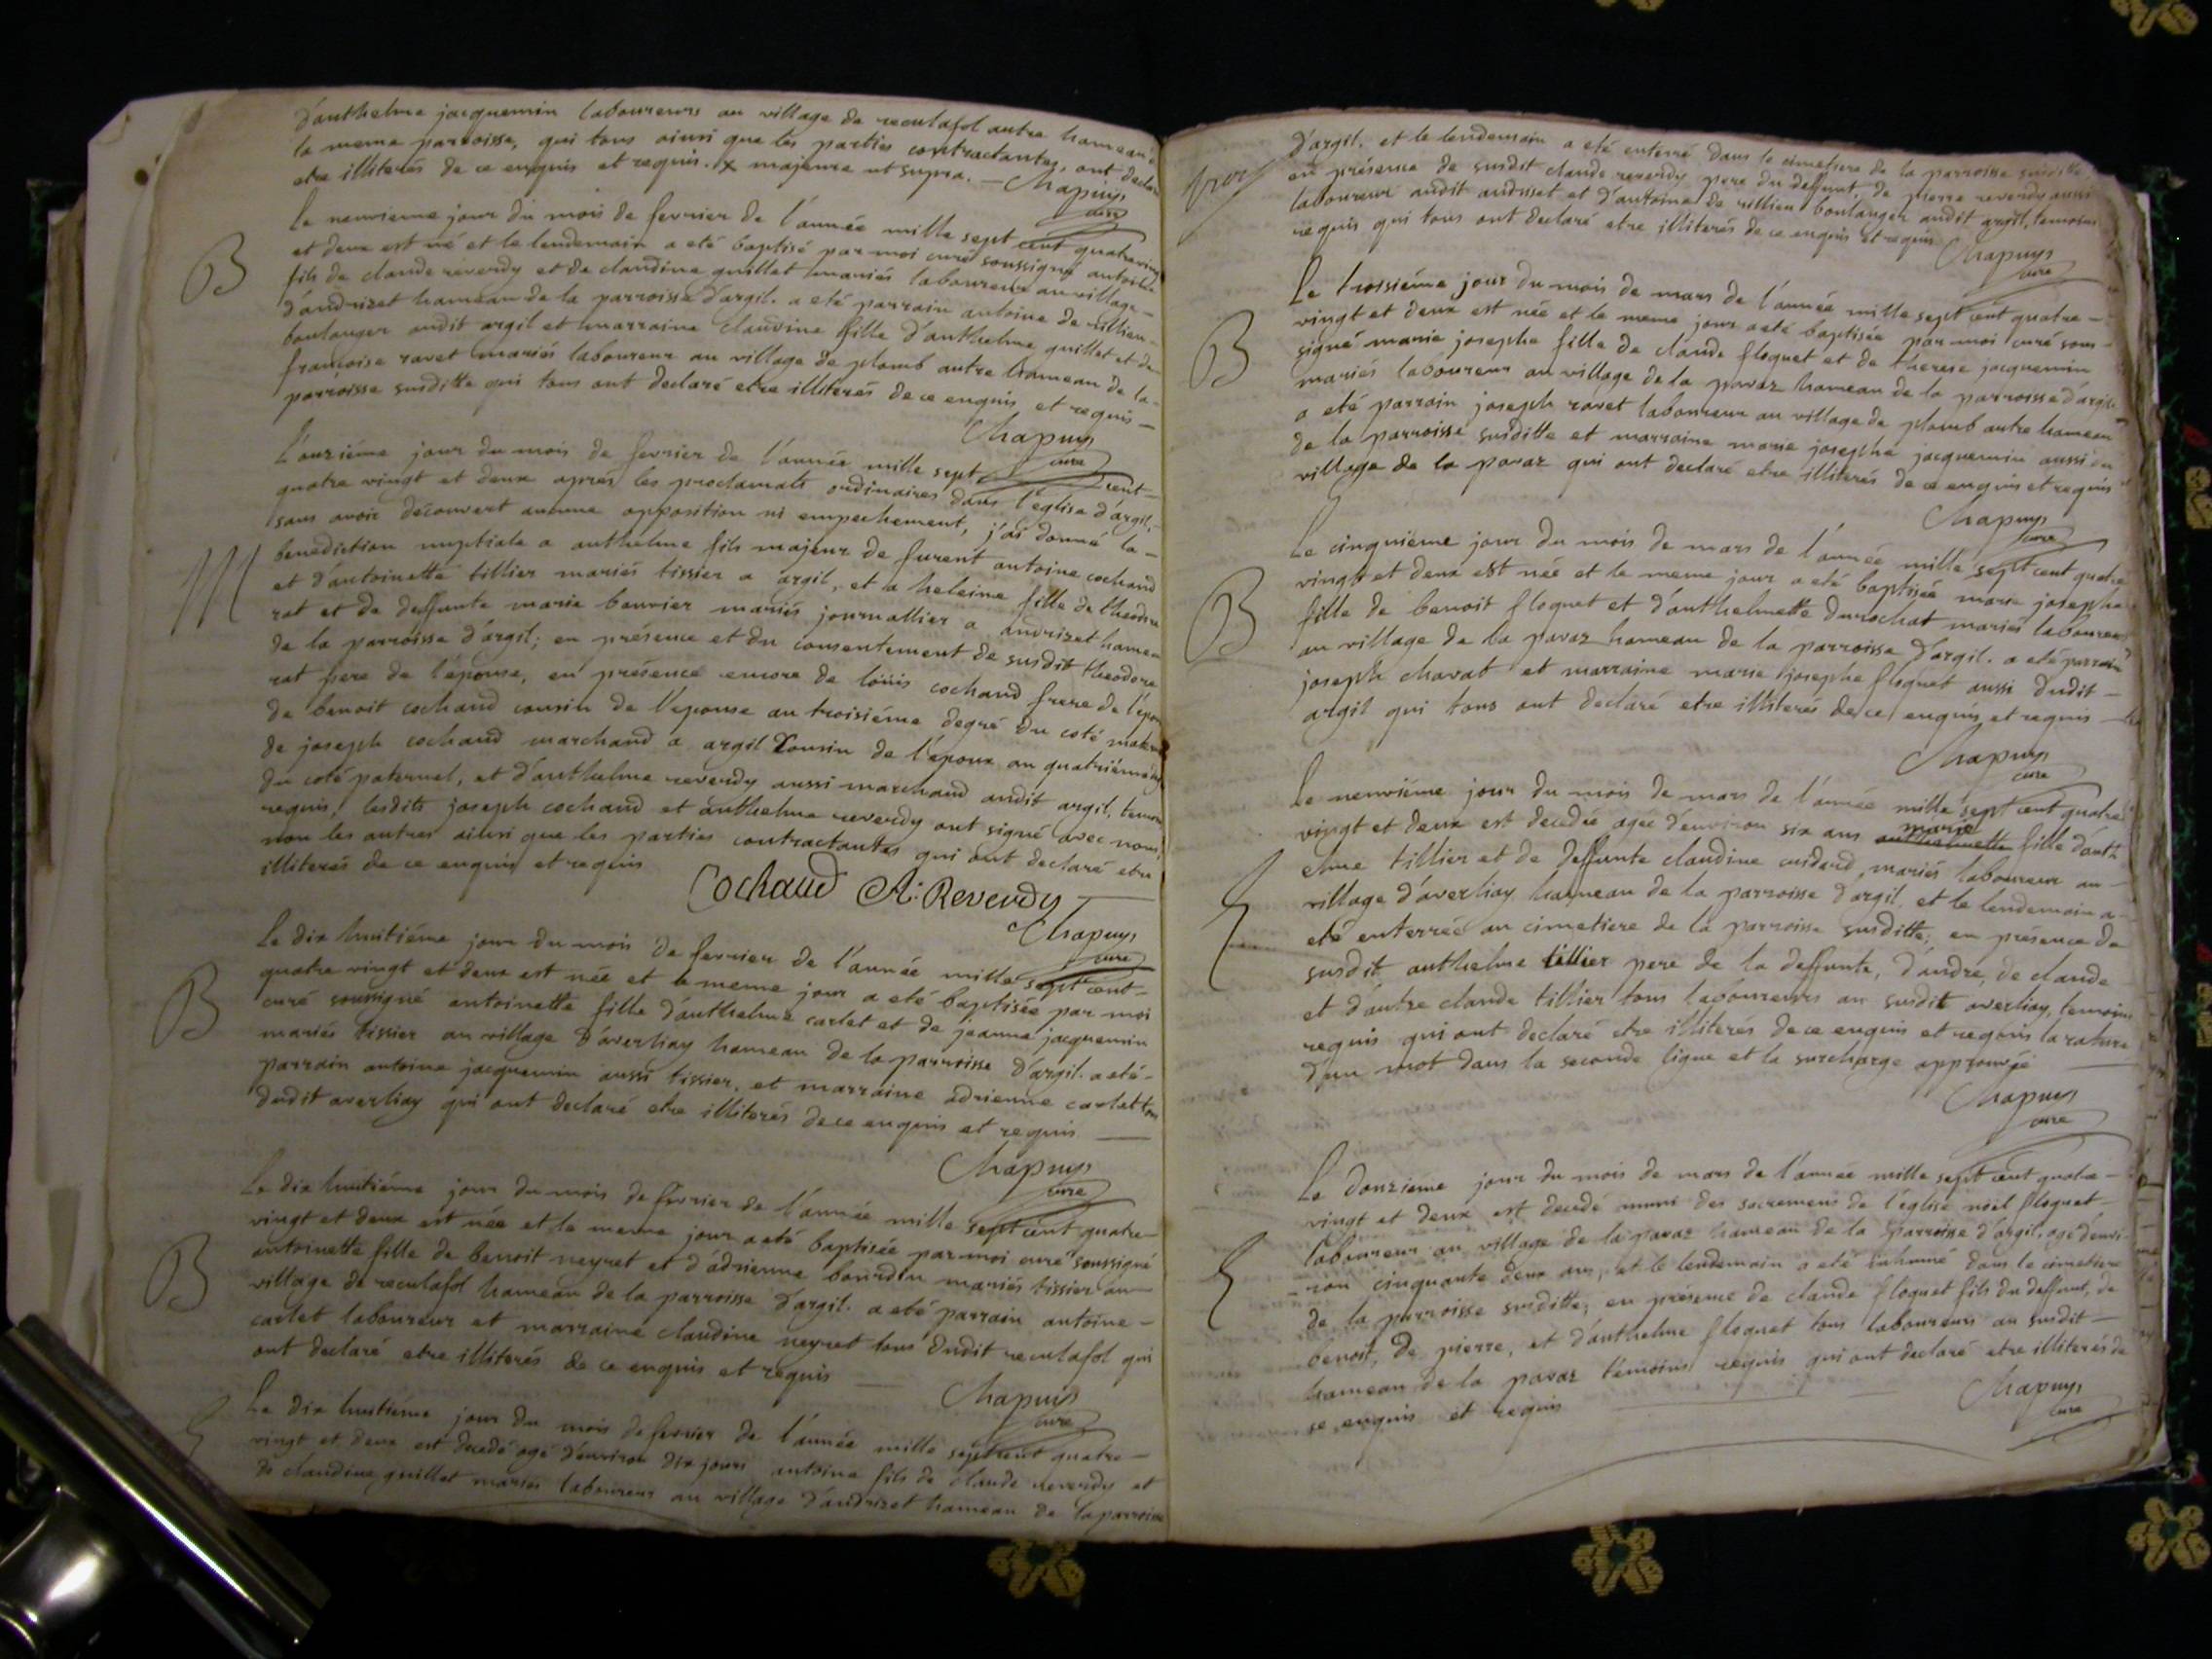 d'anthelme jacquemin laboureurs au village de reculafol autre hameau d
la meme parroisse, qui tous ainsi que les parties contractantes, ont declaré
etre illiterés de ce enquis et requis. x majeure ut supra. — Chapuys
curé
B
le neuvieme jour du mois de fevrier de l'année mille sept cent quatrevingt
et deux est né et le lendemain a eté baptisé par moi curé soussigné antoine
fils de claude reverdy et de claudine quillet mariés laboureur au village
d'andrizet hameau de la parroisse d'argil. a eté parrain antoine de rillieu
boulanger audit argil et marraine claudine fille d'anthelme quillet et de
francoise ravet mariés laboureur au village de plomb autre hameau de la
parroisse susditte qui tous ont declaré etre illiterés de ce enquis et requis —
Chapuys
curé
M
L'onziéme jour du mois de fevrier de l'année mille sept cent
quatre vingt et deux aprés les proclamats ordinaires dans l'eglise d'argil,
sans avoir decouvert aucune opposition ni empechement, j'ai donné la
benediction nuptiale a anthelme fils majeur de furent antoine cochand
et d'antoinette tillier mariés tissier a argil, et a heleine fille de theodore
rat et de deffunte marie bouvier mariés journallier a andrizet hameau
de la parroisse d'argil; en présence et du consentement de susdit theodore
rat pere de l'épouse, en présence encore de loüis cochand frere de l'époux
de benoit cochand cousin de l'epouse au troisiéme degré du coté maternel
de joseph cochand marchand a argil cousin de l'époux au quatriéme degré
du coté paternel, et d'anthelme reverdy aussi marchand audit argil, temoins
requis, lesdits joseph cochand et anthelme reverdy ont signé avec nous,
non les autres ainsi que les parties contractantes qui ont declaré etre
illiterés de ce enquis et requis
Cochand A: Reverdy
Chapuys
curé
B
Le dix huitiéme jour du mois de fevrier de l'année mille sept cent
quatre vingt et deux est née et le meme jour a eté baptisée par moi
curé soussigné antoinette fille d'anthelme carlet et de jeanne jacquemin
mariés tissier au village d'averliay hameau de la parroisse d'argil. a eté
parrain antoine jacquemin aussi tissier, et marraine adrienne carlet tous
dudit averliay qui ont declaré etre illiterés de ce enquis et requis —
Chapuys
curé
B
Le dix huitiéme jour du mois de fevrier de l'année mille sept cent quatre
vingt et deux est née et le meme jour a eté baptisée par moi curé soussigné
antoinette fille de benoit neyret et d'adrienne bourdin mariés tissier au
village de reculafol hameau de la parroisse d'argil. a eté parrain antoine
carlet laboureur et marraine claudine neyret tous dudit reculafol qui
ont declaré etre illiterés de ce enquis et requis —
Chapuys
curé
Le dix huitiéme jour du mois de fevrier de l'année mille sept cent quatre
vingt et deux est decedé agé d'environ dix jours antoine fils de claude reverdy et
de claudine quillet mariés laboureur au village d'andrizet hameau de la parroisse
d'argil. et le lendemain a eté enterré dans le cimetiere de la parroisse susditte,
en présence de susdit claude reverdy pere du deffunt, de pierre reverdy aussi
laboureur audit andrizet et d'antoine de rillieu boulanger audit argil, temoins
requis qui tous ont declaré etre illiterés de ce enquis et requis
Chapuys
curé
B
Le troisiéme jour du mois de mars de l'année mille sept cent quatre
vingt et deux est née et le meme jour a eté baptisée par moi curé sous
signé marie josephe fille de claude floquet et de therese jacquemin
mariés laboureur au village de la pavaz hameau de la parroisse d'argil.
a eté parrain joseph ravet laboureur au village de plomb autre hameau
de la parroisse susditte et marraine marie josephe jacquemin aussi du
village de la pavaz qui ont declaré etre illiterés de ce enquis et requis
Chapuys
curé
B
Le cinquiéme jour du mois de mars de l'année mille sept cent quatre
vingt et deux est née et le meme jour a eté baptisée marie josephe
fille de benoit floquet et d'anthelmette durochat mariés laboureur
au village de la pavaz hameau de la parroisse d'argil. a eté parrain
joseph chavat et marraine marie josephe floquet aussi dudit
argil qui tous ont declaré etre illiterés de ce enquis et requis —
Chapuys
curé
Le neuviéme jour du mois de mars de l'année mille sept cent quatre
vingt et deux est decedée agée d'environ six ans marie fille d'anth
elme tillier et de deffunte claudine mariés laboureur au
village d'averliay hameau de la parroisse d'argil, et le lendemain a
eté enterrée au cimetiere de la parroisse susditte, en présence de
susdit anthelme tillier pere de la deffunte, d'andré, de claude
et d'autre claude tillier tous laboureurs au susdit averliay, temoins
requis qui ont declaré etre illiterés de ce enquis et requis la rature
d'un mot dans la seconde ligne et la surcharge approuvée —
Chapuys
curé
Le douzieme jour du mois de mars de l'année mille sept cent quatre
vingt et deux est decedé muni des sacremens de l'église noël floquet
laboureur au village de la pavaz hameau de la parroisse d'argil. agé d'envi
ron cinquante deux ans, et le lendemain a eté inhumé dans le cimetiere
de la parroisse susditte; en présence de claude floquet fils du deffunt, de
benoit, de pierre, et d'anthelme floquet tous laboureurs au susdit
hameau de la pavaz temoins requis qui ont declaré etre illiterés de
ce enquis et requis
Chapuys
curé